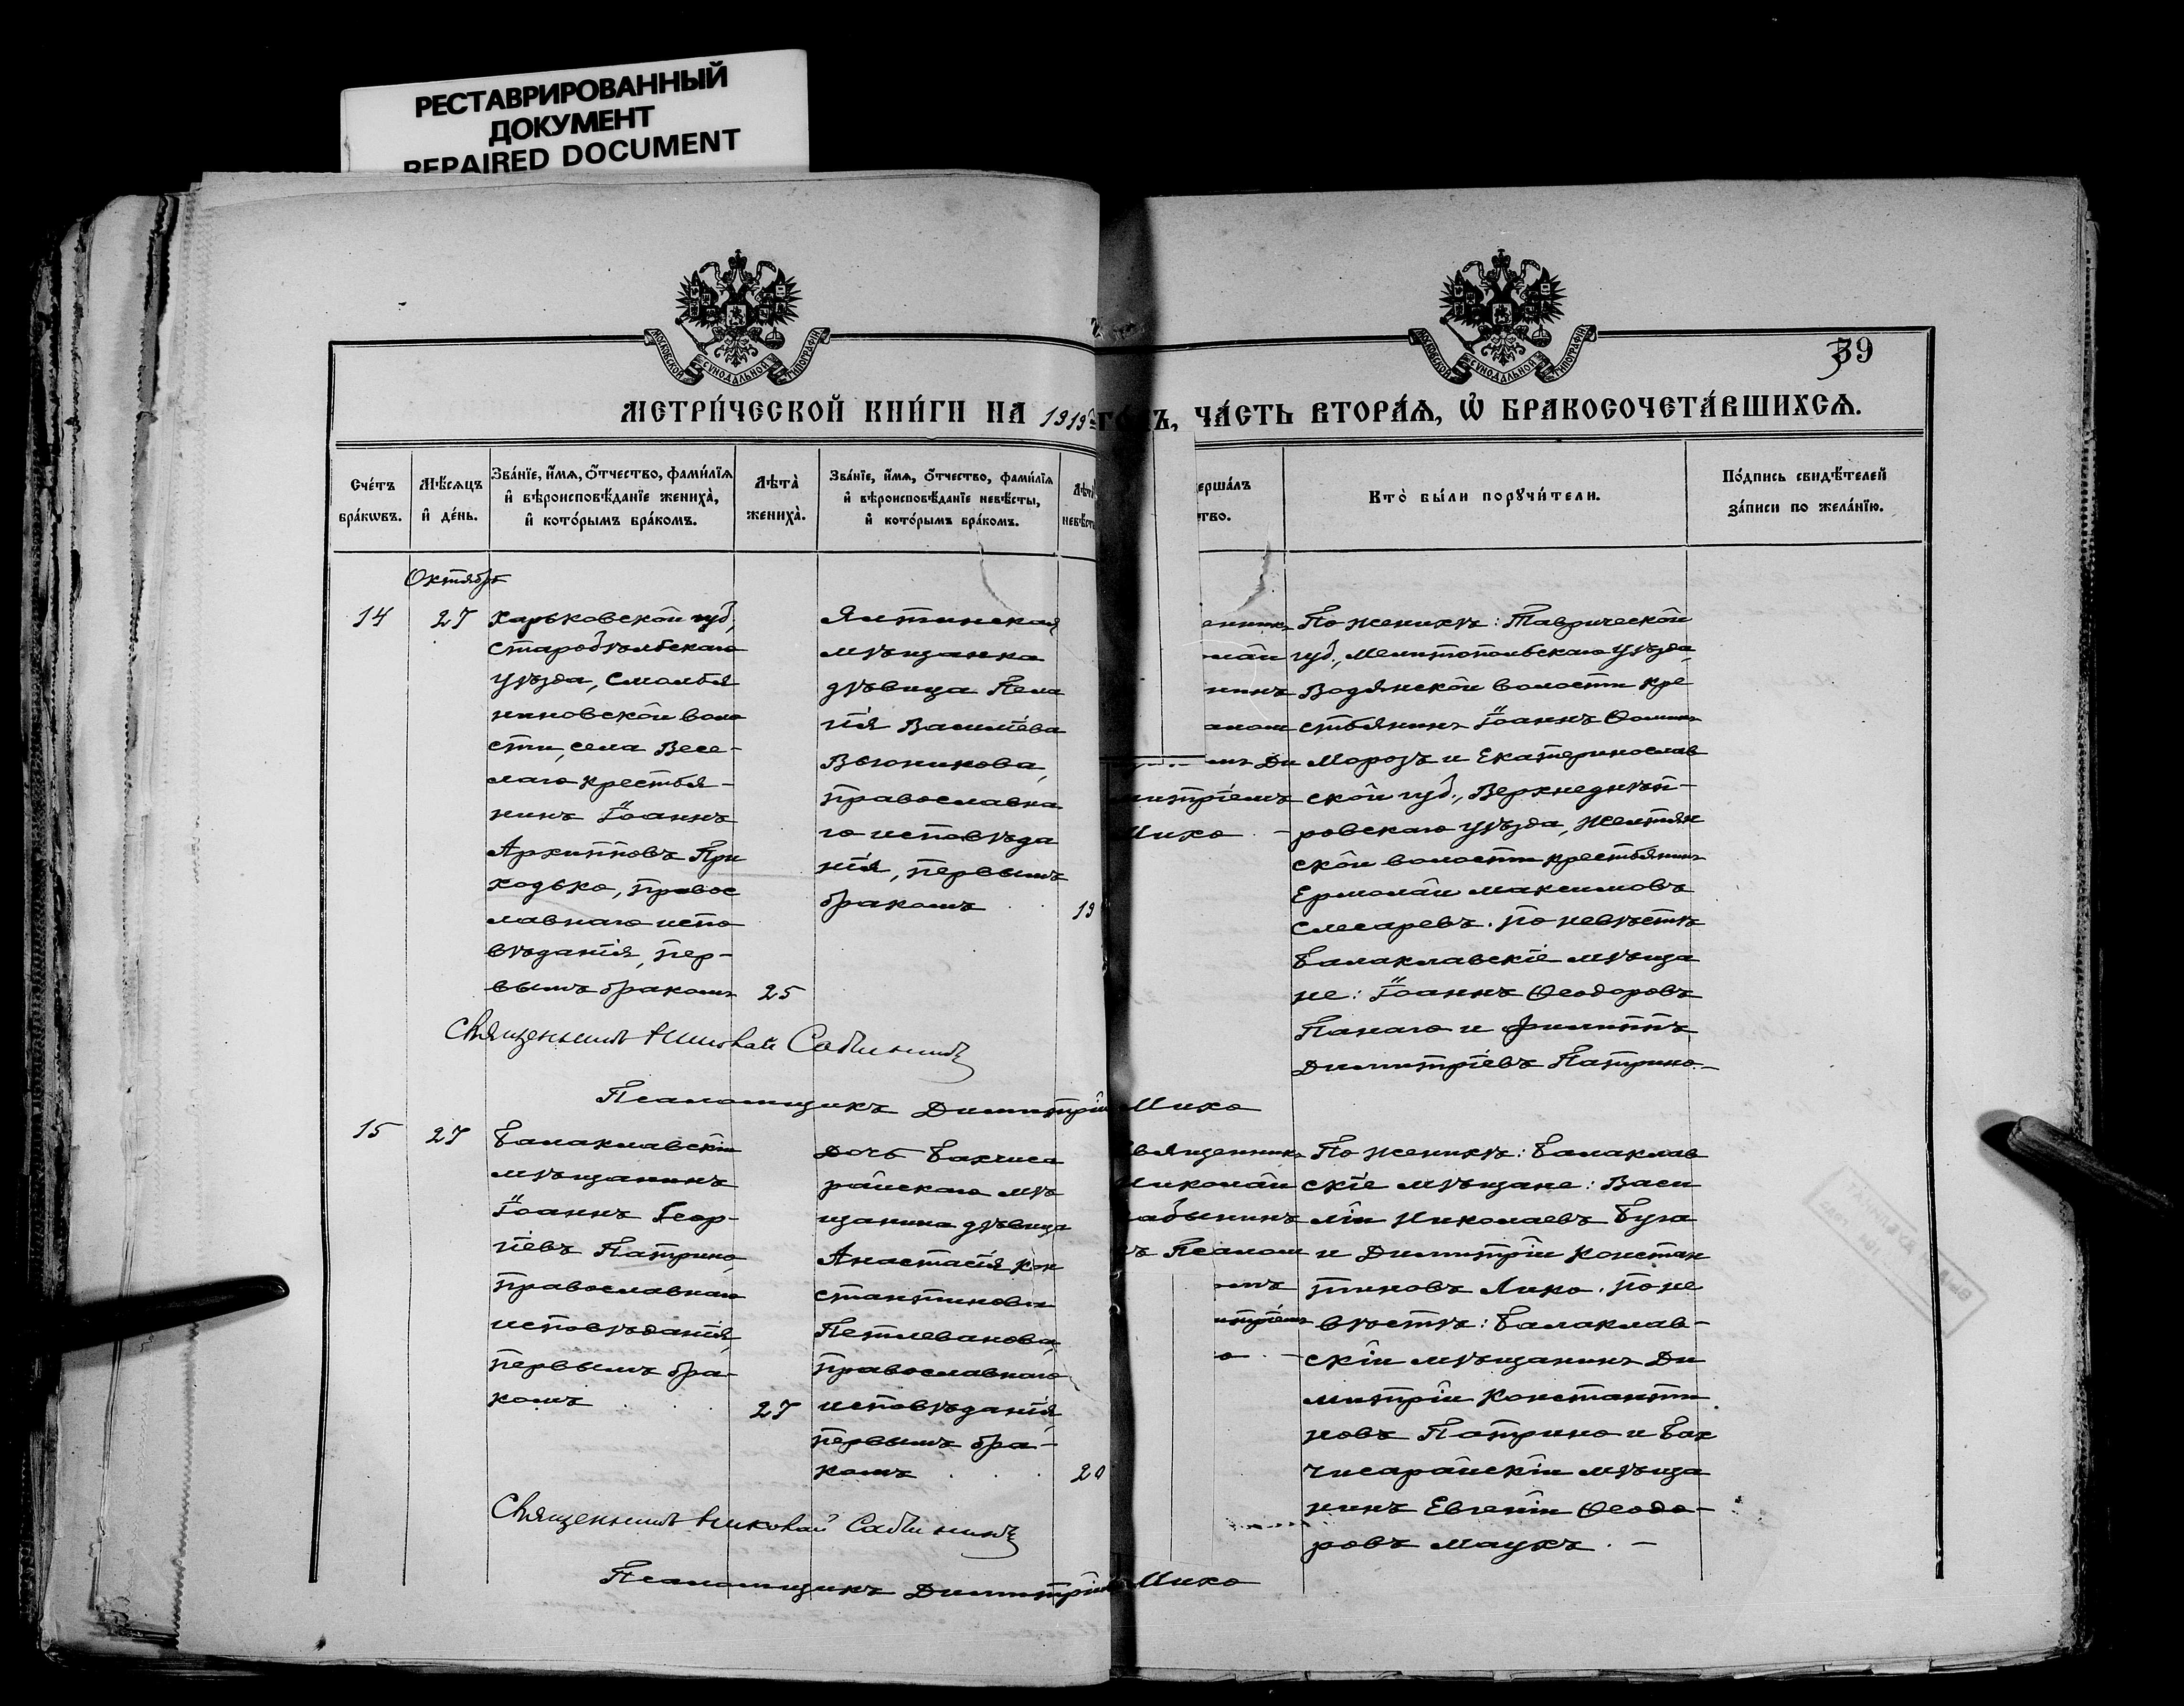 РЕСТАВРИРОВАННЫЙ
ДОКУМЕНТ
REPAIRED DOCUMENT
МОСКОВСКОЙ СУНОДАЛЬНОЙ ТИПОГРАФІИ
МОСКОВСКОЙ СУНОДАЛЬНОЙ ТИПОГРАФІИ
39
МЕТРИ́ЧЕСКОЙ КНИ́ГИ НА 1919 ГО́ДЪ, ЧА́СТЬ ВТОРА́Я, Ѡ БРАКОСОЧЕТА́ВШИХСЯ.
Сче́тъ
бра́кѡвъ.
Мѣ́сяцъ
и де́нь.
Зва́нїе, и́мя, о́тчество, фами́лїя
и вѣроисповѣ́данїе жениха̀,
и кото́рымъ бра́комъ.
Лѣта̀
жениха̀.
Зва́нїе, и́мя, о́тчество, фами́лїя
и вѣроисповѣ́данїе невѣ́сты,
и кото́рымъ бра́комъ.
Лѣта̀
невѣ́сты
ерша́лъ
тво.
Кто̀ бы́ли порꙋчи́тели.
По́дпись свидѣ́телей
за́писи по жела́нїю.
Октябрь
14
27
Харьковской губ,
старобѣльбскаго
уѣзда, Смольбя
ниновской воло
сти, села Весе-
лаго крестья-
нинъ Іоаннъ
Архипповъ При
ходько, правос
лавнаго испо
вѣданія, пер-
вымъ бракомъ
25
Ялтинская
мѣщанка
дѣвица Пела
гія Василіева
Вьюникова,
православна
го исповѣда
нія, первымъ
бракомъ
19
енникъ
олай
нинъ
алом
мъ Ди
митріемъ
Лико -
По женихѣ: Таврической
губ., Мелитопольбскаго уѣзда,
Водянской волости кре
стьянинъ Іоаннъ Ѳоминъ
Морозъ и Екатеринослав
ской губ., Верхнеднѣп-
ровскаго уѣзда, Желтян
ской волости крестьянинъ
Ермолай Максимовъ
Слесаревъ. По невѣстѣ
Балаклавскіе мѣща
не: Іоаннъ Ѳеодоровъ
Панаго и Филиппъ
Димитріевъ Патрино.-
Священникъ Николай Сабынинъ
Псаломщикъ Димитрій Лико
15
27
Балаклавскій
мѣщанинъ
Іоаннъ Геор-
гіевъ Патрино,
православнаго
исповѣданія,
первымъ бра-
комъ
27
Дочь Бахчиса
райскаго мѣ
щанина дѣвица
Анастасія Кон
стантинова
Петлеванова,
православнаго
исповѣданія
первымъ бра-
комъ
20
Священникъ
Николай
Сабынинъ
ъ Псалом
омъ
итріемъ
о -
По женихѣ: Балаклав
скіе мѣщане: Васи
лій Николаевъ Буга
и Димитрій Констан
тиновъ Лико. По не
вѣстѣ: Балаклав-
скій мѣщанинъ Ди
митрій Константи
новъ Патрино и Бах
чисарайскій мѣща
нинъ Евгеній Ѳеодо-
ровъ Маукъ. -
Священникъ Николай Сабынинъ
Псаломщикъ Димитрій Лико